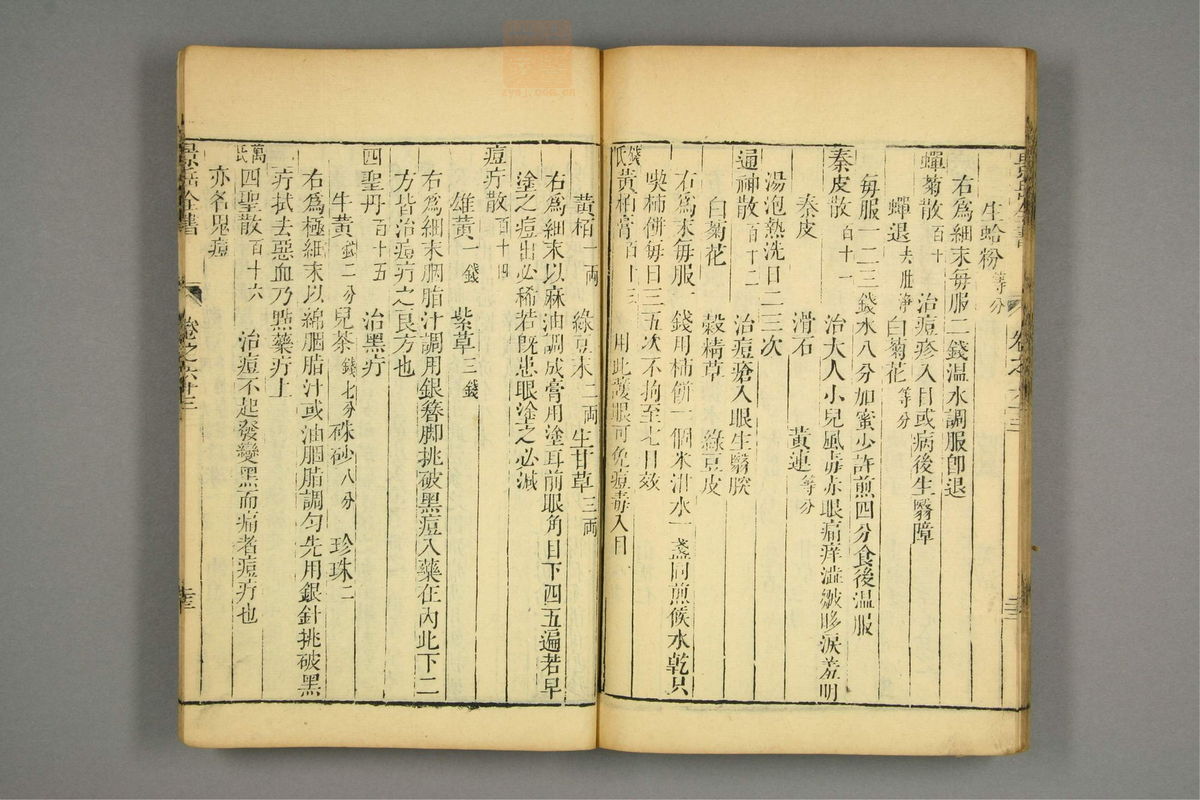 生蛤粉 等分
右爲細末每服二錢温水調服卽退
蟬菊散 百十 治痘疹入目或病後生翳障
蟬退 去土淨 白菊花 等分
每服一二三錢水八分加蜜少許煎四分食後温服
秦皮散 百十一 治大人小兒風毒赤眼痛痒澁皺眵淚羞明
秦皮 滑石 黄連 等分
湯泡熱洗日二三次
通神散 百十二 治痘瘡入眼生翳膜
白菊花 穀精草 綠豆皮
右爲末每服一錢用柿餅一個米泔水一盞同煎候水乾只
喫柿餅每日三五次不拘至七日效
錢氏黄柏膏 百十三 用此護眼可免痘毒入目
黄栢 一兩 綠豆末 二兩 生甘草 三兩
右爲細末以麻油調成膏用塗耳前眼角目下四五遍若早
塗之痘出必稀若既患眼塗之必減
痘疔散 百十四
雄黄 一錢 紫草 三錢
右爲細末胭脂汁調用銀簪脚挑破黑痘入藥在內此下二
方皆治痘疔之良方也
四聖丹 百十五 治黑疔
牛黄 錢二分 兒茶 錢七分 硃砂 八分 珍珠 二
右爲極細末以綿胭脂汁或油胭脂調勻先用銀針挑破黑
疔拭去惡血乃㸃藥疔上
萬氏四聖散 百十六 治痘不起發變黑而痛者痘疔也
亦名鬼痘
景岳全書 卷之六十三